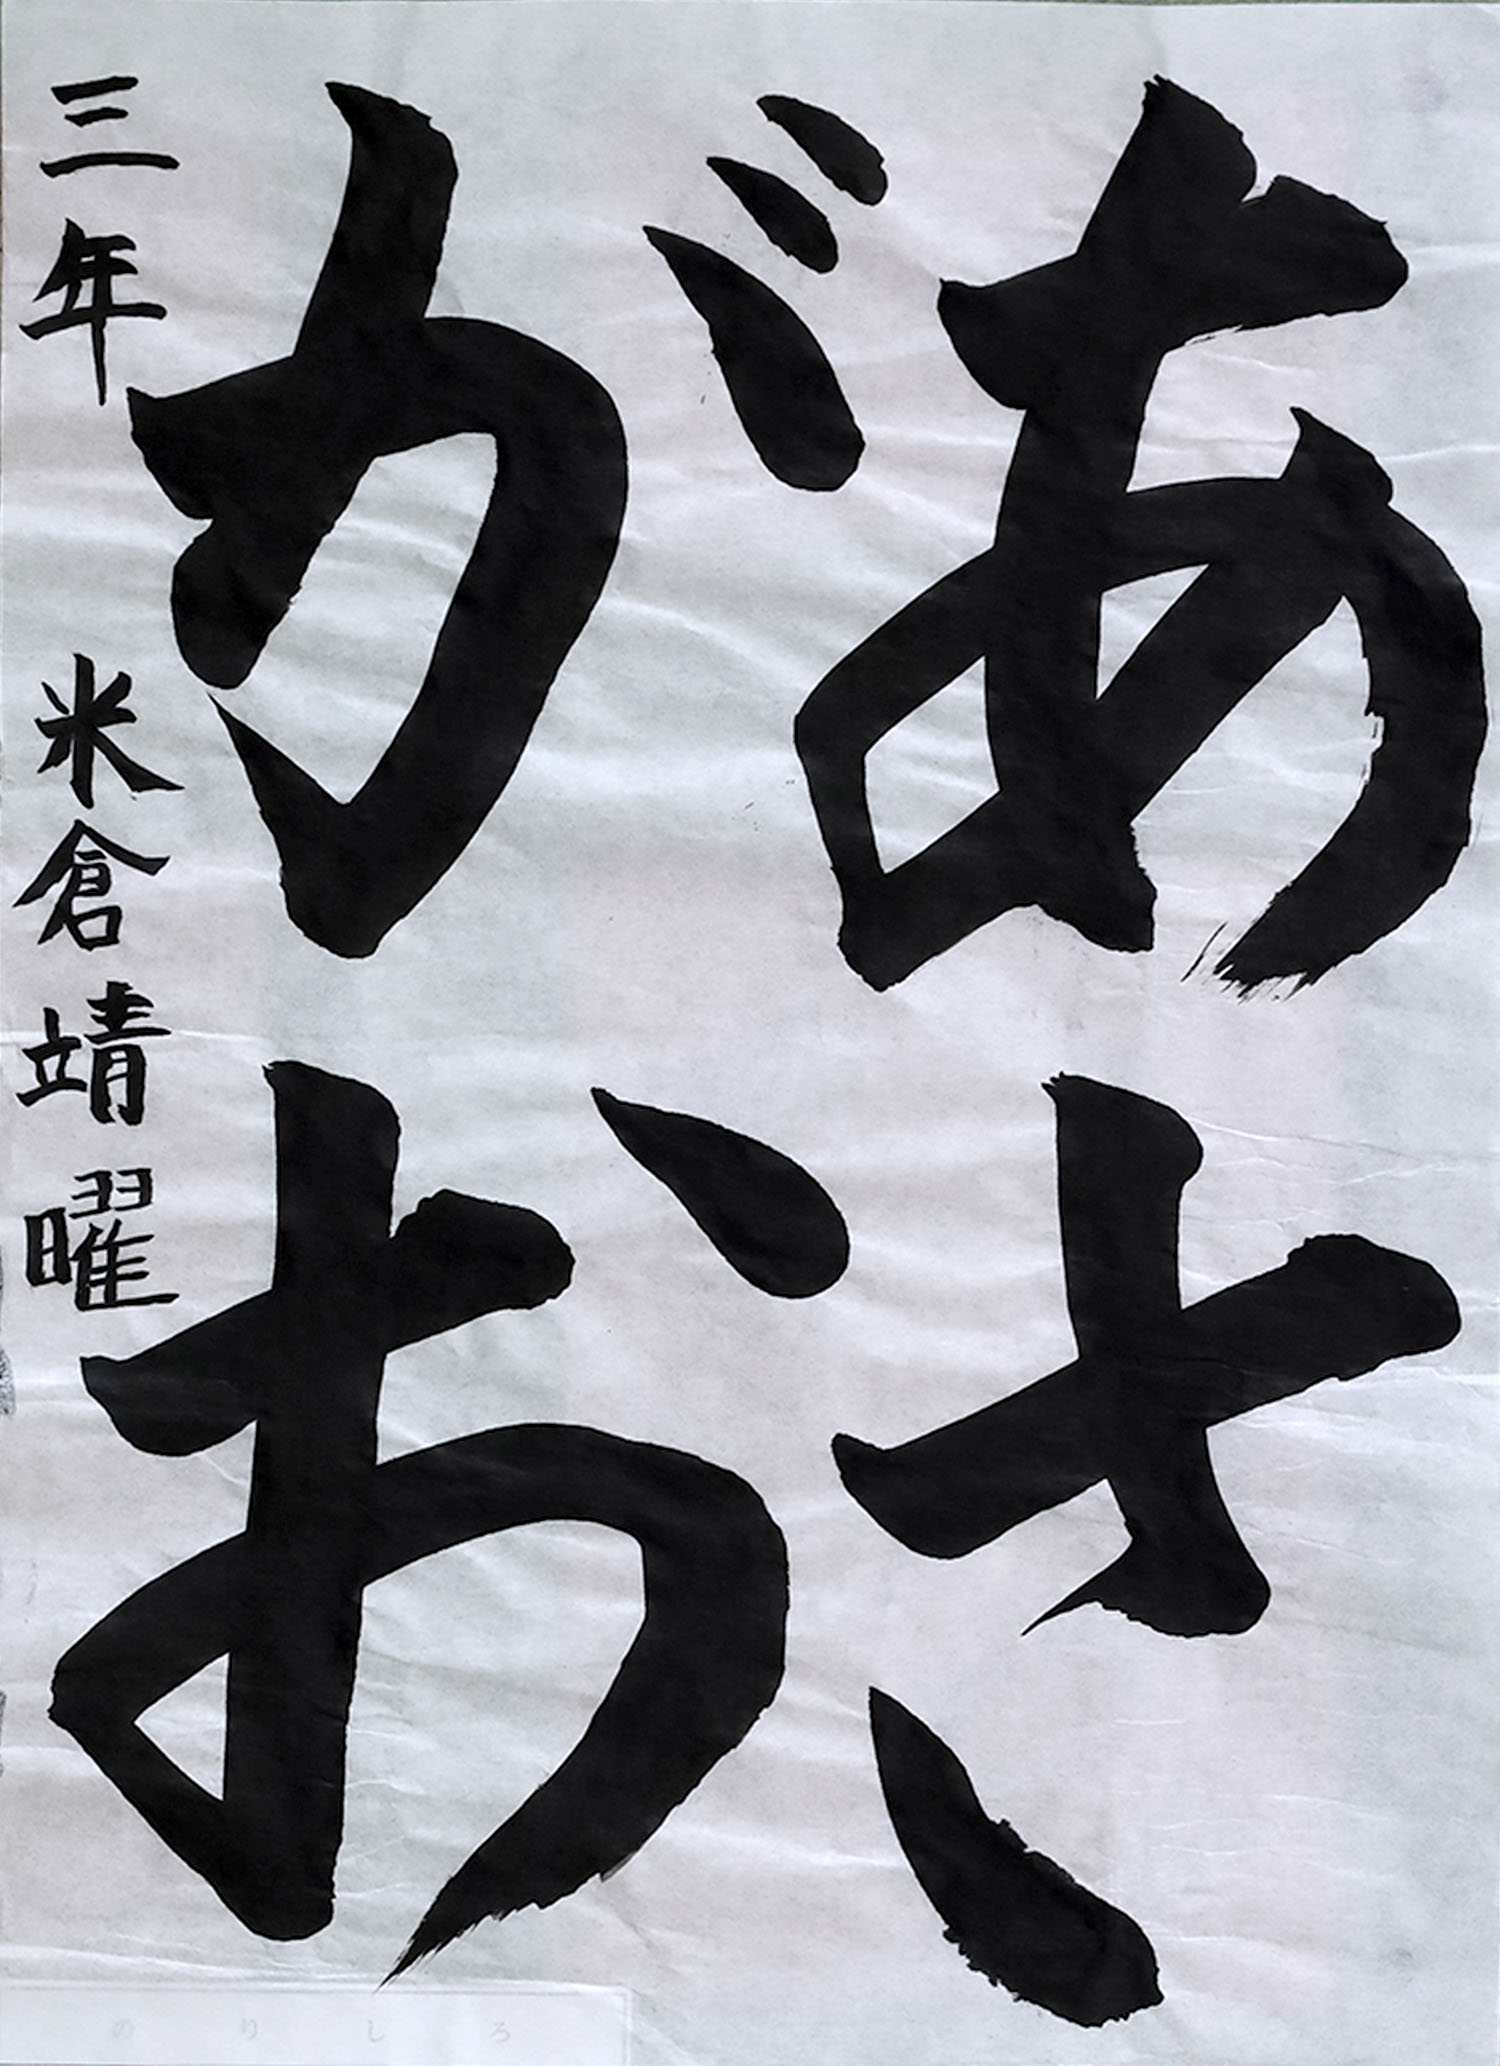 あさ
がお
三年 米倉靖曜
のりしろ